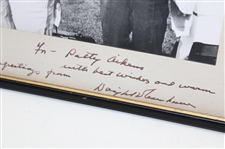 For — Patty Aikens
with best wishes and warm
greetings from
Dwight D Eisenhower